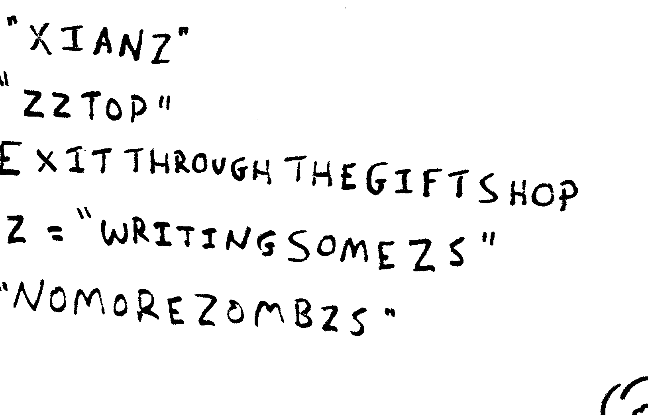 "XIANZ"
"ZZTOP"
EXITTHROUGHTHEGIFTSHOP
Z = "WRITINGSOMEZS"
"NOMOREZOMBZS"